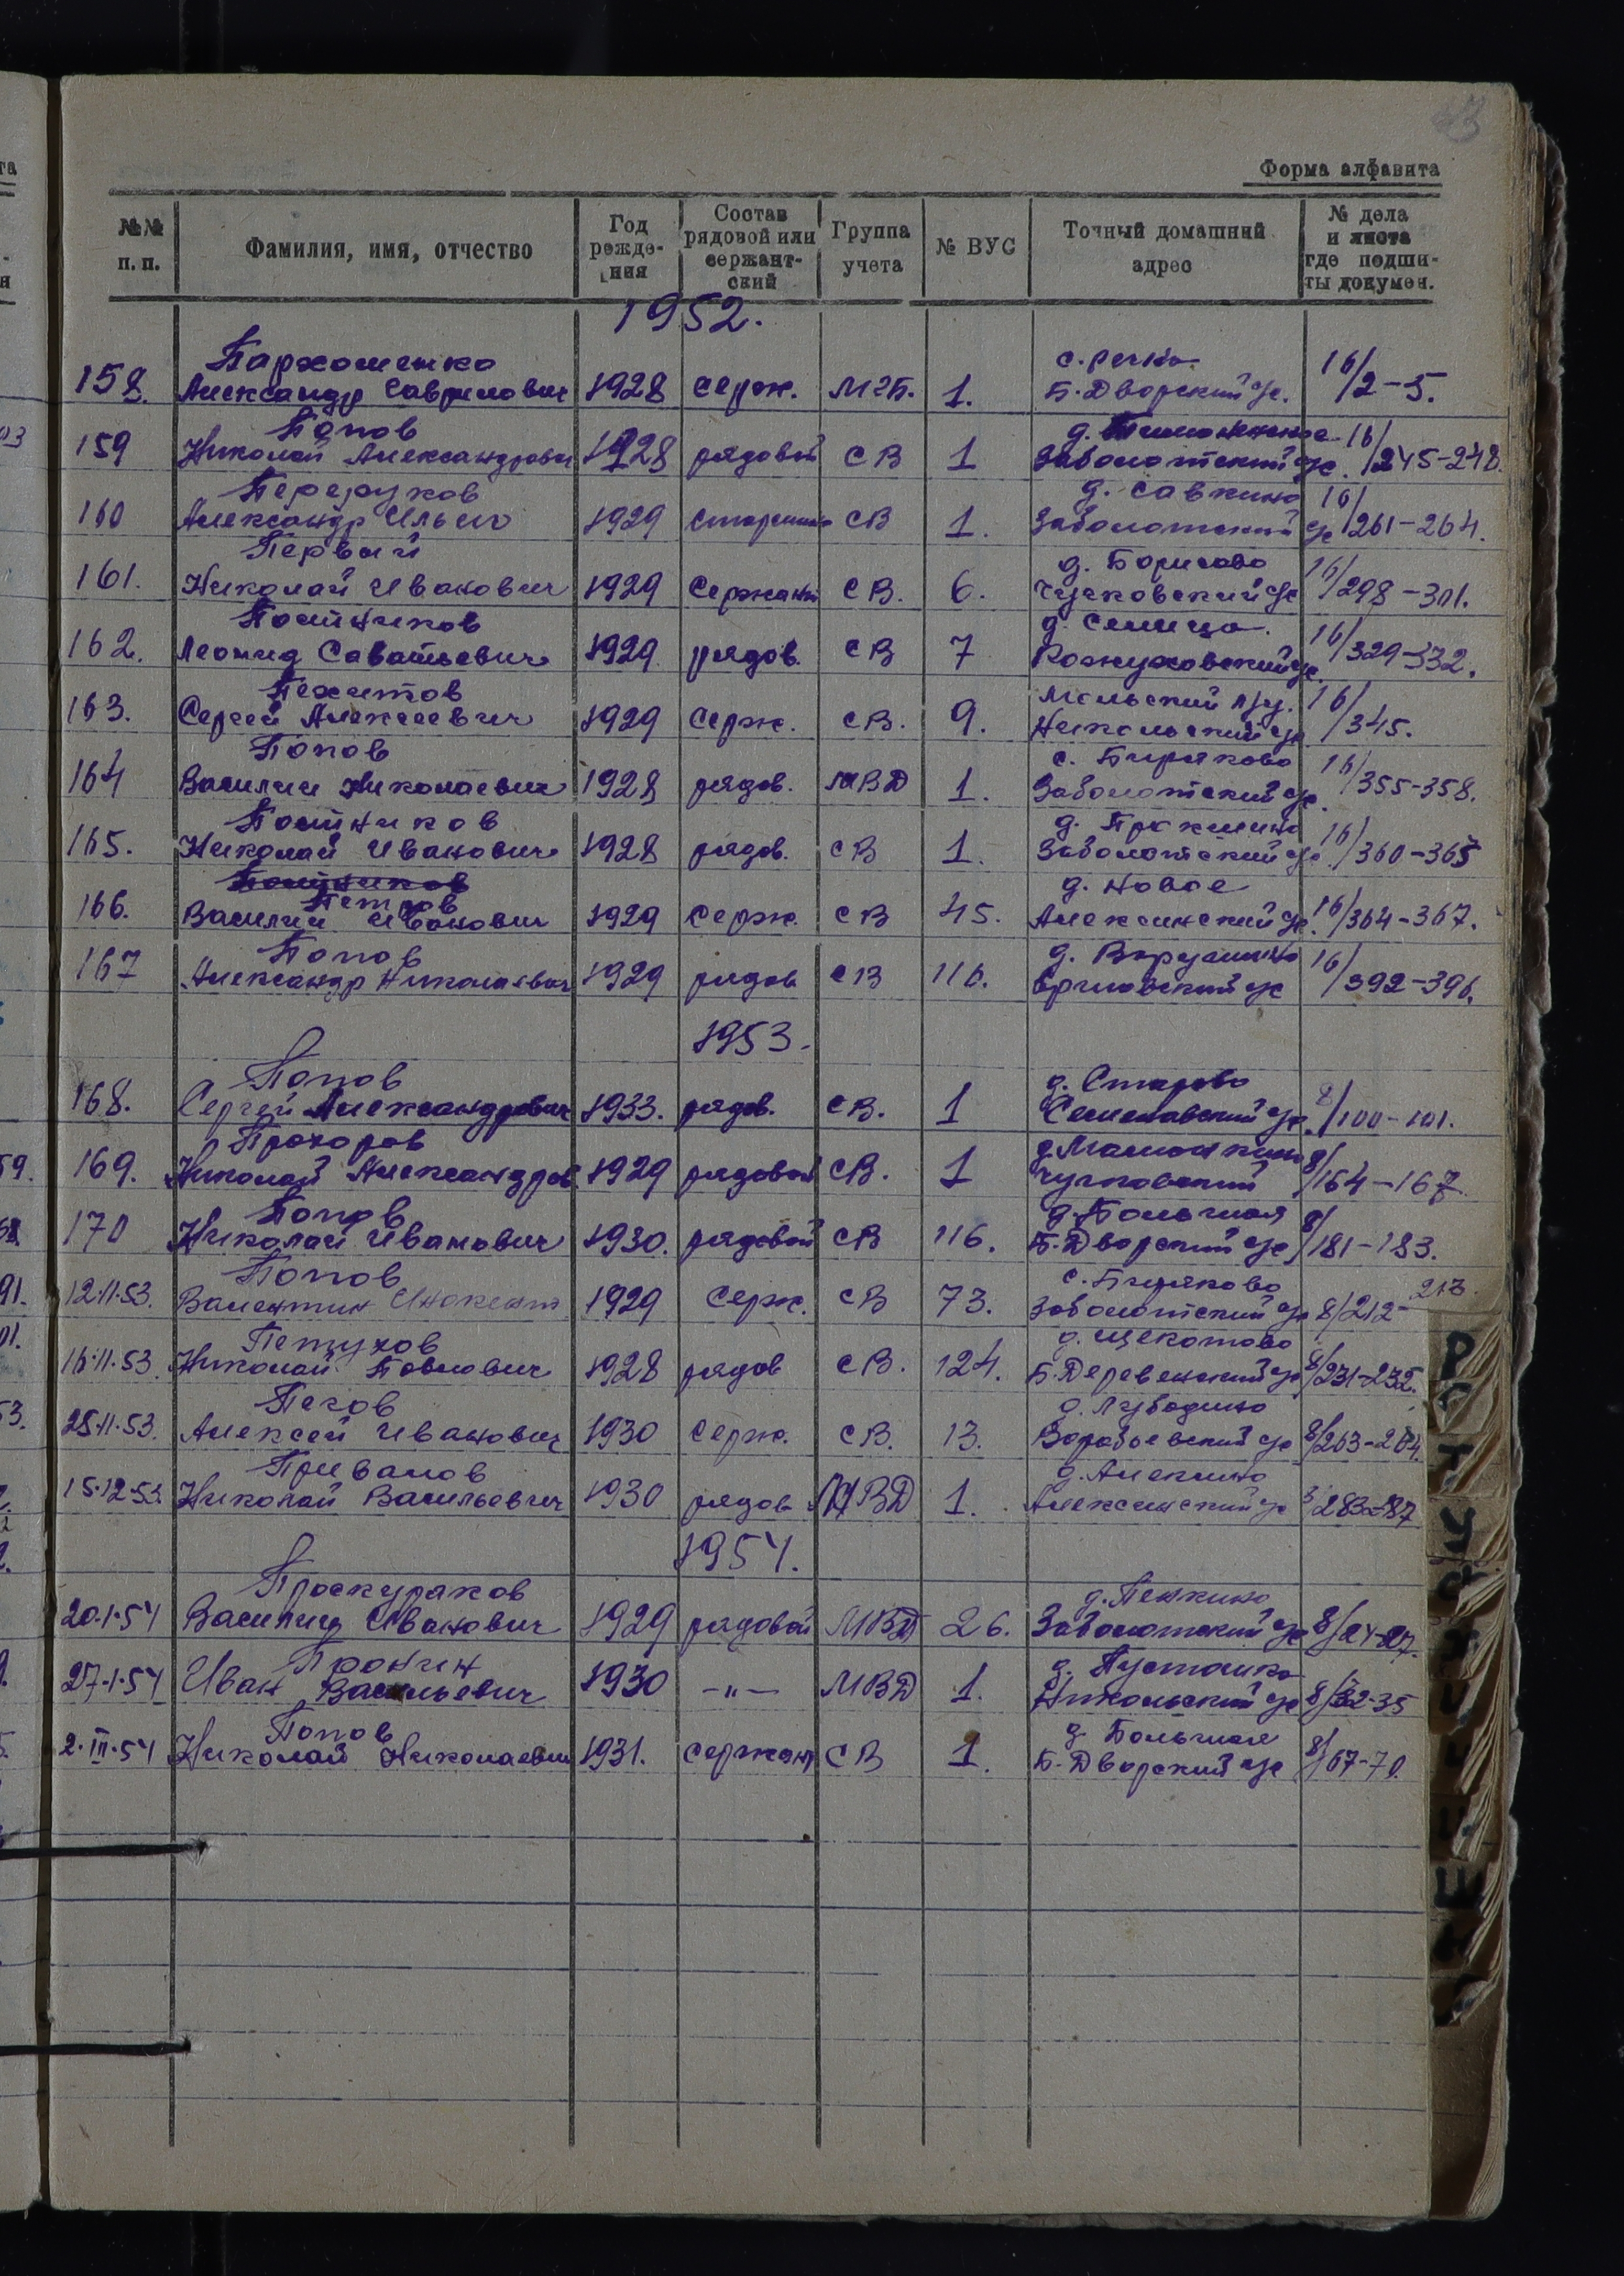 Форма алфавита
№№ п.п. Фамилия, имя, отчество Год рожде-ния Состав рядовой или сержант-ский Группа учета № ВУС Точный домашний адрес № дела и листа где подши-ты докумен.
1952.
Пархоменко с. Речка 16/
158. Александр Гаврилович 1928 серж. МГБ. 1. Б. Дворский с/с. 2-5.
Попов 16/
159 Николай Александрович 1928 рядовой СВ 1 Заболотский с/с. 245-248.
д. Савкино 16/
160 Александр Ильич 1929 Старшина СВ 1. Заболотский с/с 261-264.
Первый д. Борисово 16/
161. Николай Иванович 1929 Сержант СВ. 6. с/с 298-301.
Постников д. Селища. 16/
162. Леонид Саватьевич 1929 рядов. СВ 7 Кожуховский с/с. 329-332.
Пехитов 16/
163. Сергей Алексеевич 1929 Серж. СВ. 9. Никольский с/с 345.
Попов с. Биряково 16/
164 Василий Николаевич 1928 рядов. МВД 1. Заболотский с/с. 355-358.
Постников 16/
165. Николай Иванович 1928 рядов. СВ 1. Заболотский с/с. 360-363
Постников д. Новое
Петров
166. Василий Иванович 1929 Серж. СВ 45. Алексинский с/с. 16/364-367.
Попов д. Ворушино 16/
167 Александр Николаевич 1929 рядов СВ 116. с/с 392-396.
1953.
Попов д. Старово
168. Сергей Александрович 1933. рядов. СВ. 1 с/с. 8/100-101.
Прохоров 8/
169. Николай Александров 1929 рядовой СВ. 1 Чучковский 164-167
Попов д. Большая 8/
170 Николай Иванович 1930. рядовой СВ 116. Б. Дворский с/с 181-183.
Попов с. Биряково 213.
12.11.53. Валентин Инокент 1929 Серж. СВ 73. Заболотский с/с 8/212-
Петухов д. Щекотово
16.11.53. Николай Павлович 1928 рядов СВ. 124. Б. Деревенский с/с 8/231-232.
Пегов
25.11.53. Алексей Иванович 1930 Серж. СВ. 13. Воробьевский с/с 8/263-264.
Привалов д. Алексино
15.12.53. Николай Васильевич 1930 рядов МВД 1. Алексинский с/с 283-87
1954.
Проскураков д. Пенкино
20.1.54 Василий Иванович 1929 рядовой МВД 26. Заболотский с/с 8/24-27.
Пронин д. Пустошка
27.1.54 Иван Васильевич 1930 -"- МВД 1. Никольский с/с 8/32-35
Попов д. Большая 8/
2.III.54 Николай Николаевич 1931. сержант СВ 1. Б. Дворский с/с 67-70.